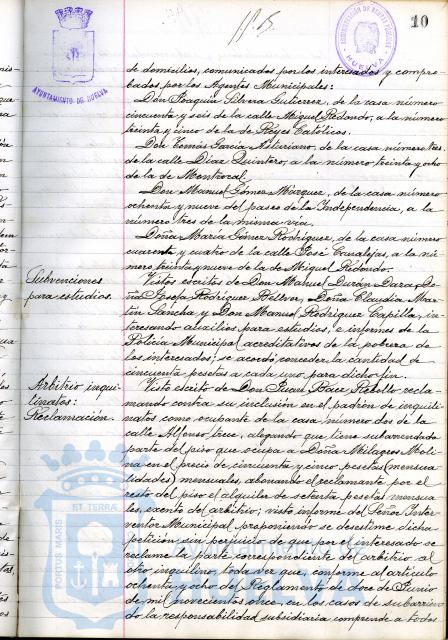 10
AYUNTAMIENTO DE HUELVA
HUELVA
de domicilios, comunicados por los interesados y compro
bados por los Agentes Municipales:
Don Joaquín Gutierrez, de la casa número
cincuenta y seis de la calle Miguel Redondo, a la número
treinta y cinco de la de Reyes Católicos.
Don Tomás García Asturiano, de la casa número tres
de la calle Díaz Quintero, a la número treinta y ocho
de la de Montrocal.
Don Manuel Gómez Márquez, de la casa número
ochenta y nueve del paseo de la Independencia, a la
número tres de la misma vía.
Doña María Gómez Rodríguez, de la casa número
cuarenta y cuatro de la calle José Canalejas, a la nú
mero treinta y nueve de la de Miguel Redondo.
Subvenciones
para estudios.
Vistos escritos de Don Manuel Durán Dara, Do
ña Josefa Rodríguez, Doña Claudia Mar
tín Sancha y Don Manuel Rodríguez Capilla, in
teresando auxilios para estudios, e informes de la
Policía Municipal acreditativos de la pobreza de
los interesados; se acordó conceder la cantidad de
cincuenta pesetas a cada uno para dicho fin.
Arbitrio inqui
linatos:
Reclamación.
Visto escrito de Don Juan Rebollo recla
mando contra su inclusión en el padrón de inquili
natos como ocupante de la casa número dos de la
calle Alfonso trece, alegando que tiene subarrendada
parte del piso que ocupa a Doña Milagros Moli
na en el precio de cincuenta y cinco pesetas (mensua
lidades) mensuales, abonando el reclamante por el
resto del piso el alquiler de setenta pesetas mensua
les, exento del arbitrio; visto informe del Señor Inter
ventor Municipal proponiendo se desestime dicha
petición sin perjuicio de que por el interesado se
reclame la parte correspondiente del arbitrio al
otro inquilino, toda vez que conforme al artículo
ochenta y ocho del Reglamento de doce de Junio
de mil novecientos once, en los casos de subarrien
do la responsabilidad subsidiaria comprende a todos
PORTUS MARIS ET TERRÆ